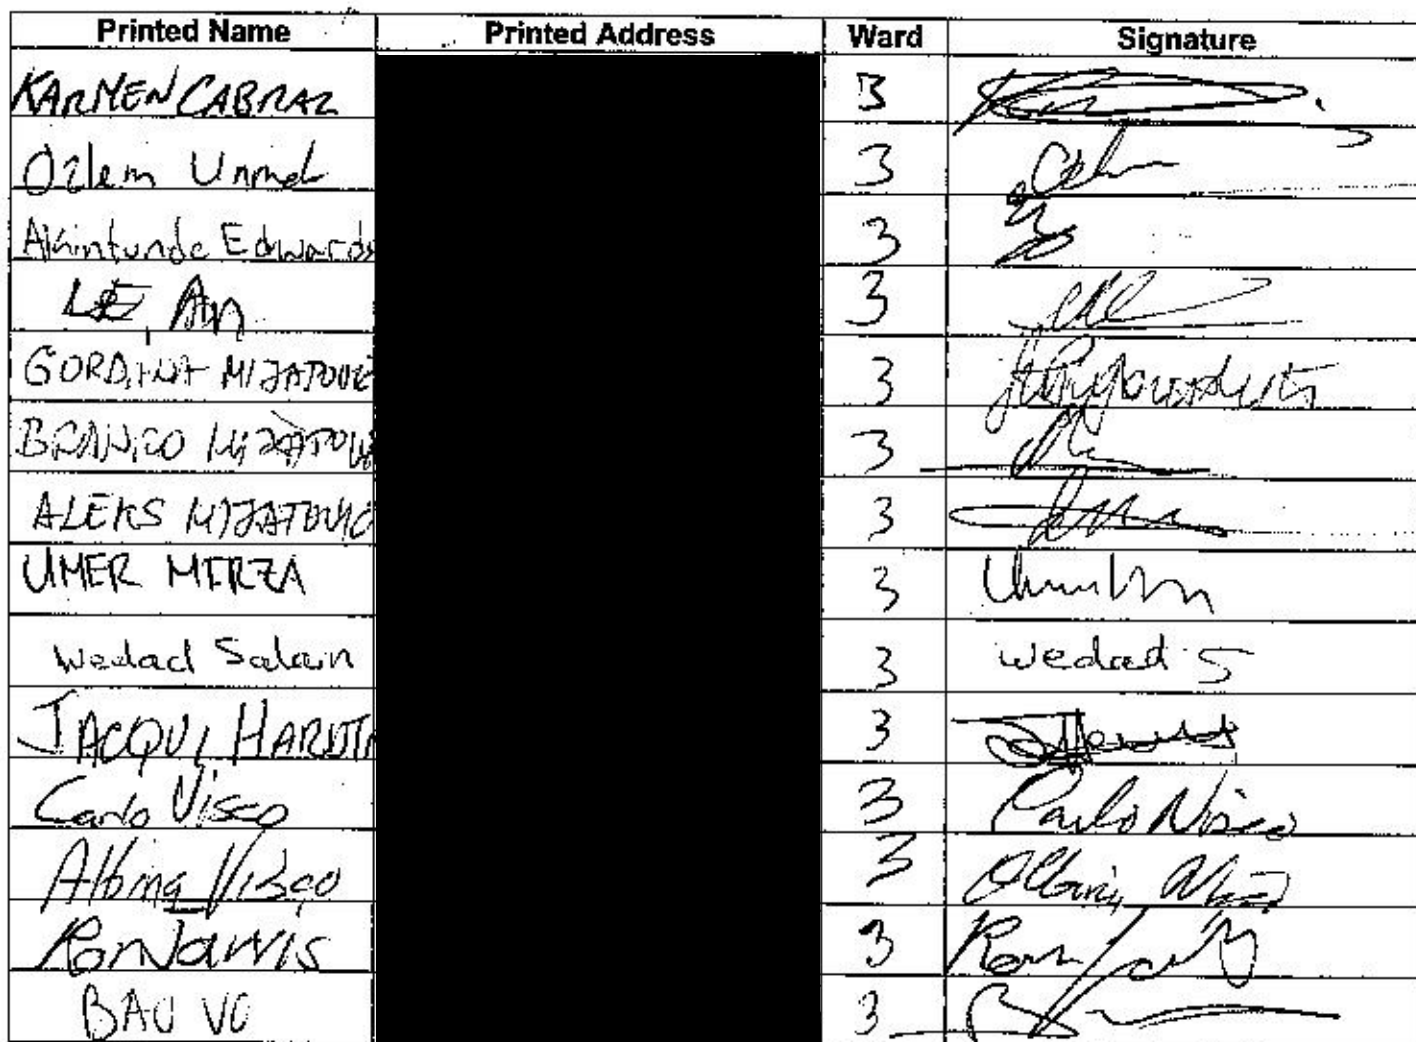 Printed Name Printed Address Ward Signature
KARMEN CABRAL 3
Ozlem 3
Akintunde Edwards 3
LE An 3
GORDANA MIJATOVIC 3
BRANKO MIJATOVIC 3
ALEKS MIJATOVIC 3
UMER MERZA 3
Wedad Salain 3 wedad S
JACQUI 3
Carlo Visco 3 Carlo Visco
Albina Visco 3 Albina Visco
Ron Jarvis 3 Ron
BAO VO 3